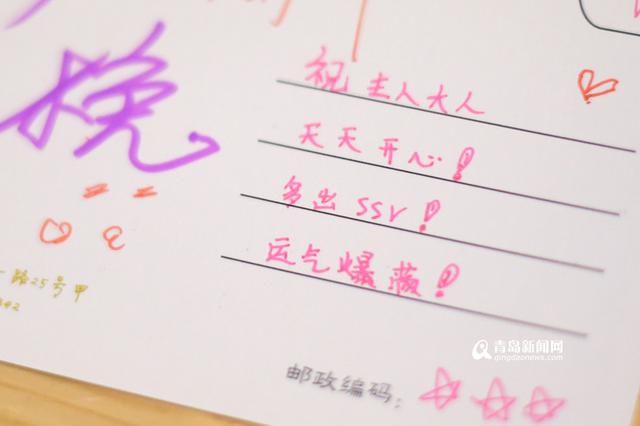 挽
祝主人大人
天天开心!
多出SSR!
运气爆蔽!
路25号甲
青岛新闻网
qingdaonews.com
邮政编码：